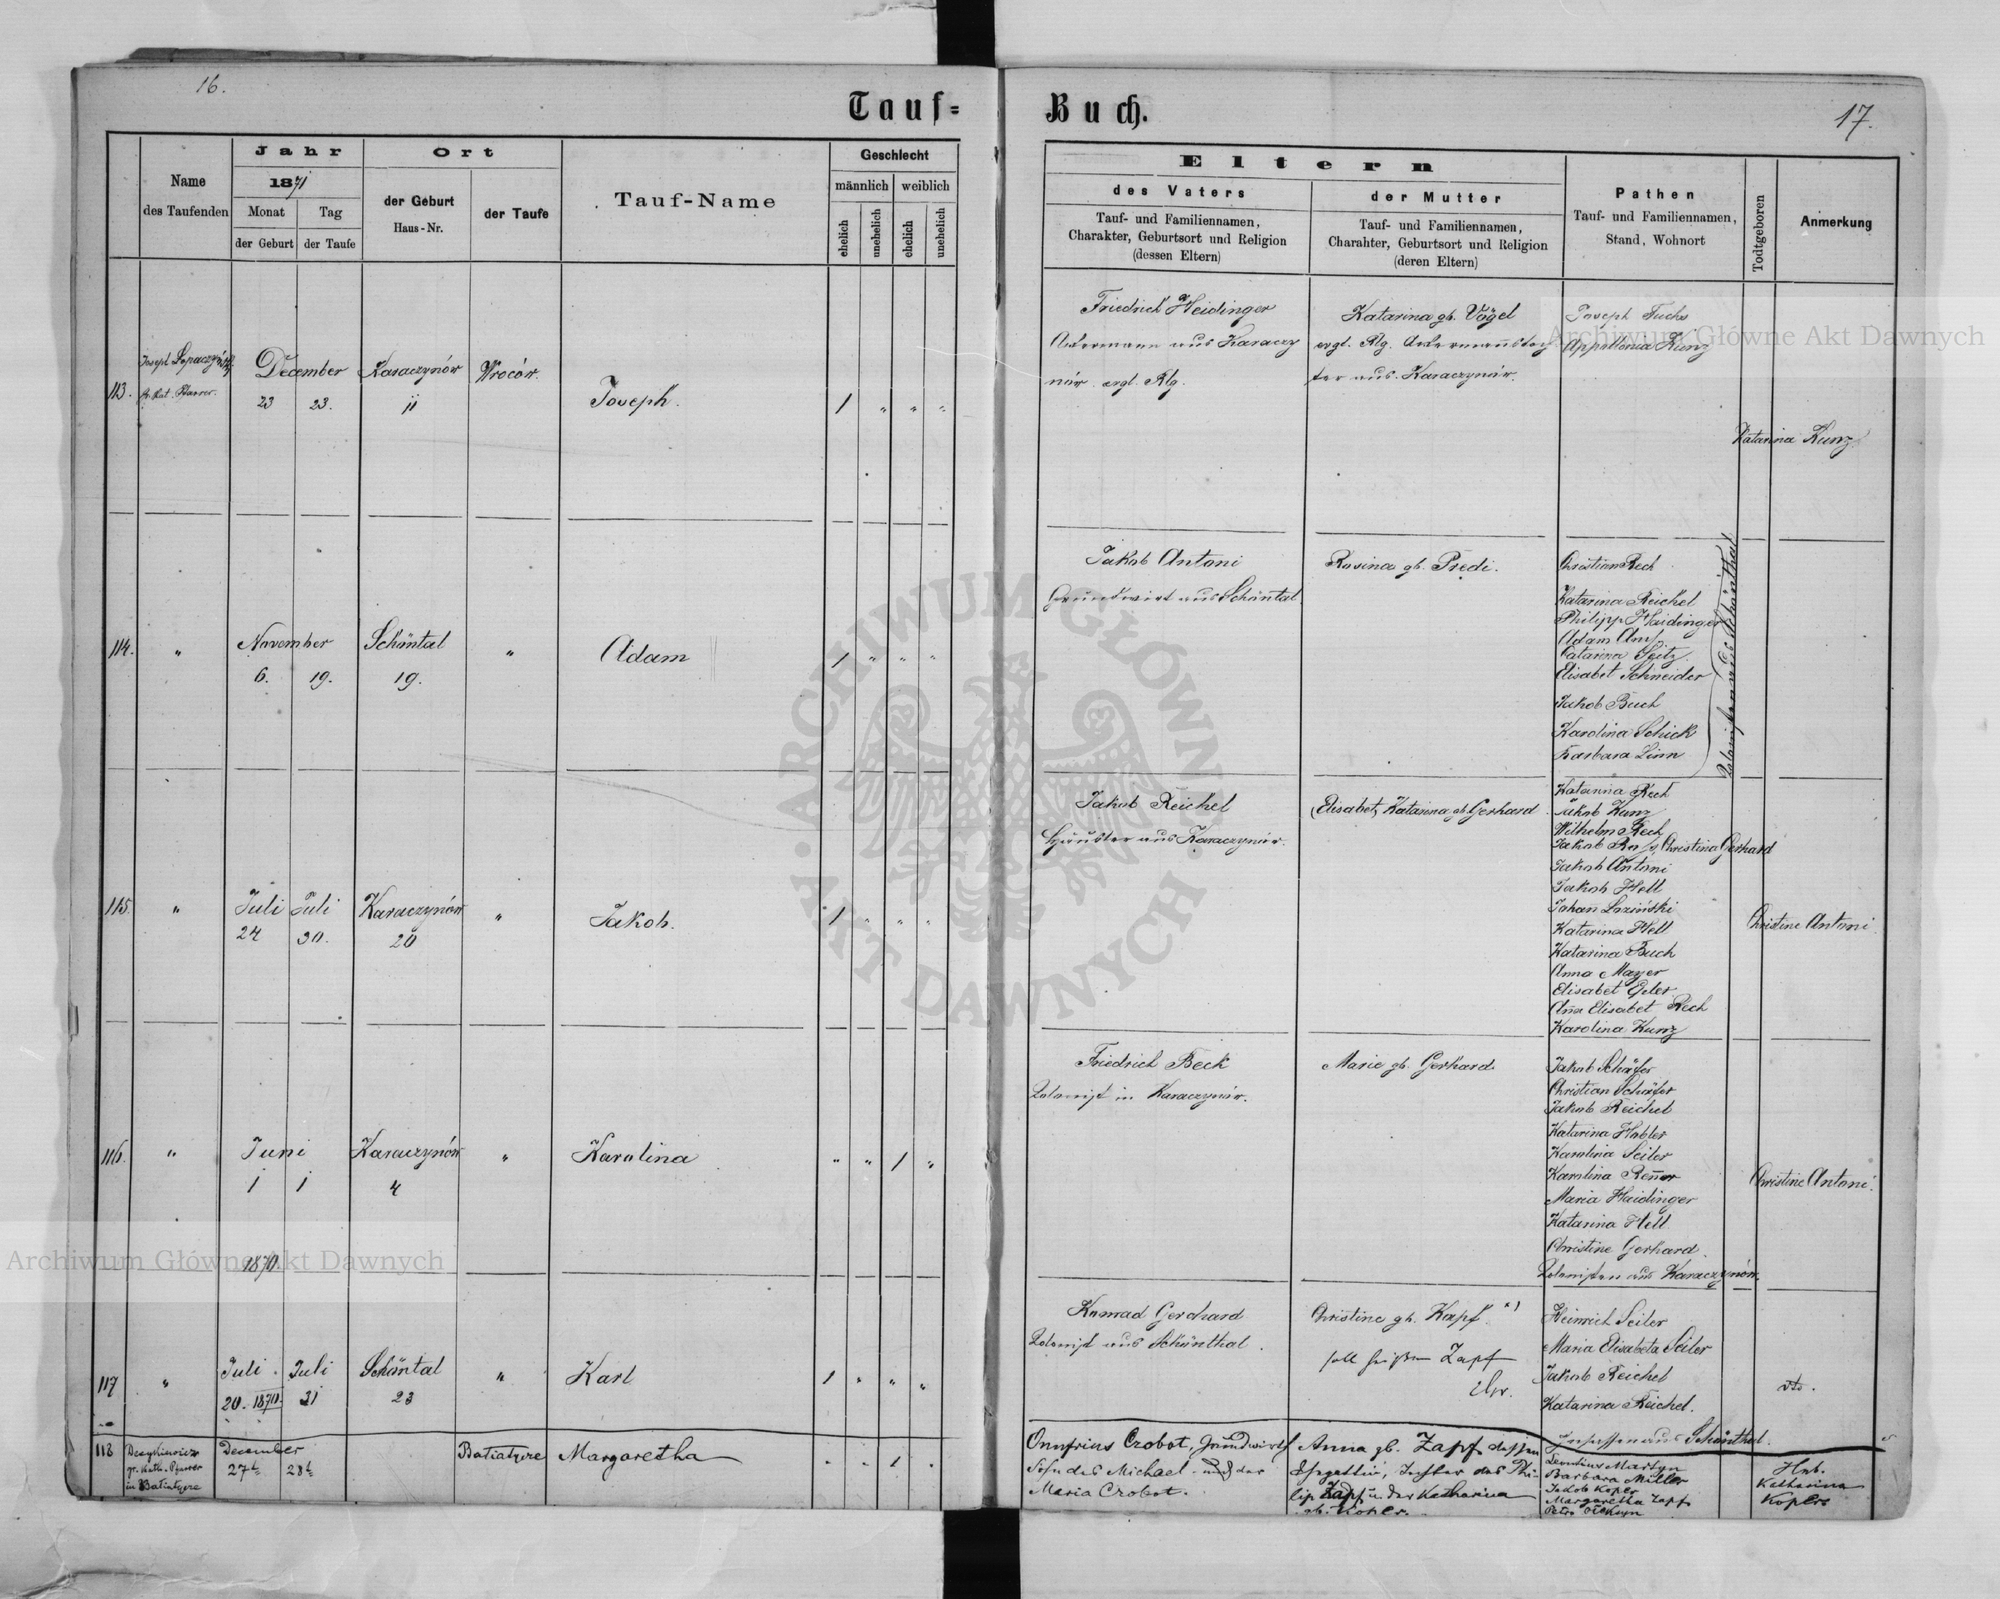 16.
Tauf=
Buch.
17.
Name
des Taufenden
Jahr
1871
Monat
Tag
der Geburt
der Taufe
Ort
der Geburt
Haus-Nr.
der Taufe
Tauf-Name
Geschlecht
männlich
weiblich
ehelich
unehelich
ehelich
unehelich
Eltern
des Vaters
Tauf- und Familiennamen,
Charakter, Geburtsort und Religion
(dessen Eltern)
der Mutter
Tauf- und Familiennamen,
Charahter, Geburtsort und Religion
(deren Eltern)
Pathen
Tauf- und Familiennamen,
Stand, Wohnort
Todtgeboren
Anmerkung
113.
Joseph
Pfarrer.
December
23
23.
Karaczynów
11
Wroców.
Joseph.
1 " " "
Friedrich Heidinger
Ackermann aus Karaczy
nów. evgl. Rlg.
Katarina gb. Vögel
evgl. Rlg. Ackermannstoch
ter aus Karaczynów.
Joseph Fuchs
Appollonia Kunz
Katarina Kunz
114.
"
November
6.
19.
Schöntal
19.
"
Adam
1 " " "
Jakob Antoni
Grundwirt aus Schöntal.
Rosina gb. Predi.
Christian Rech
Katarina Reichel
Philipp Haidinger
Adam
Catarina Seitz
Elisabet Schneider
Jakob Buch
Karolina Schick
Barbara Linn
aus Schönthal
115.
"
Juli
24
Juli
30.
Karaczynów
20
"
Jakob.
1 " " "
Jakob Reichel
Häusler aus Karaczynów.
Elisabet, Katarina gb Gerhard
Katarina Rech
Jakob Kunz
Wilhelm Rech
Jakob
Christina Gerhard
Jakob Antoni
Jakob Hell
Johan
Katarina Hell
Katarina Buch
Anna Mayer
Elisabet
Ana Elisabet Rech
Karolina Kunz
Christine Antoni
116.
"
Juni
1
1
Karaczynów
4
"
Karolina
" " 1 "
Friedrich Beck
Kolonist in Karaczynów.
Marie gb. Gerhard.
Jakob Schäfer
Christian Schäfer
Jakob Reichel
Katarina
Karolina Seiler
Karolina Reñer
Maria Haidinger
Katarina Hell
Christine Gerhard
Kolonisten aus Karaczynów.
Christine Antoni.
1870
117
"
Juli.
20. 1870.
Juli
31
Schöntal
23
"
Karl
1 " " "
Konrad Gerhard
Kolonist aus Schönthal.
Christine gb. Kapf. *)
soll heißen Zapf
Heinrich Seiler
Maria Elisabeta Seiler
Jakob Reichel
Katarina Reichel.
Insassen aus Schönthal.
dto.
118
gr. kath. Pfarrer
in Batiatyce
December
27t
28t
Batiatyce
Margaretha
. . 1 .
Onufrius Crobot, Grundwirt
Sohn des Michael und der
Maria Crobot.
Anna gb. Zapf dessen
Ehegattin, Tochter des Phi-
lip Zapf u der Katharina
gb. Koper.
Martyn
Barbara Müller
Jakob Koper
Margaretha Zapf
Petro
Heb.
Katharina
Koper
ARCHIWUM GŁÓWNE AKT DAWNYCH
Archiwum Główne Akt Dawnych
Archiwum Główne Akt Dawnych